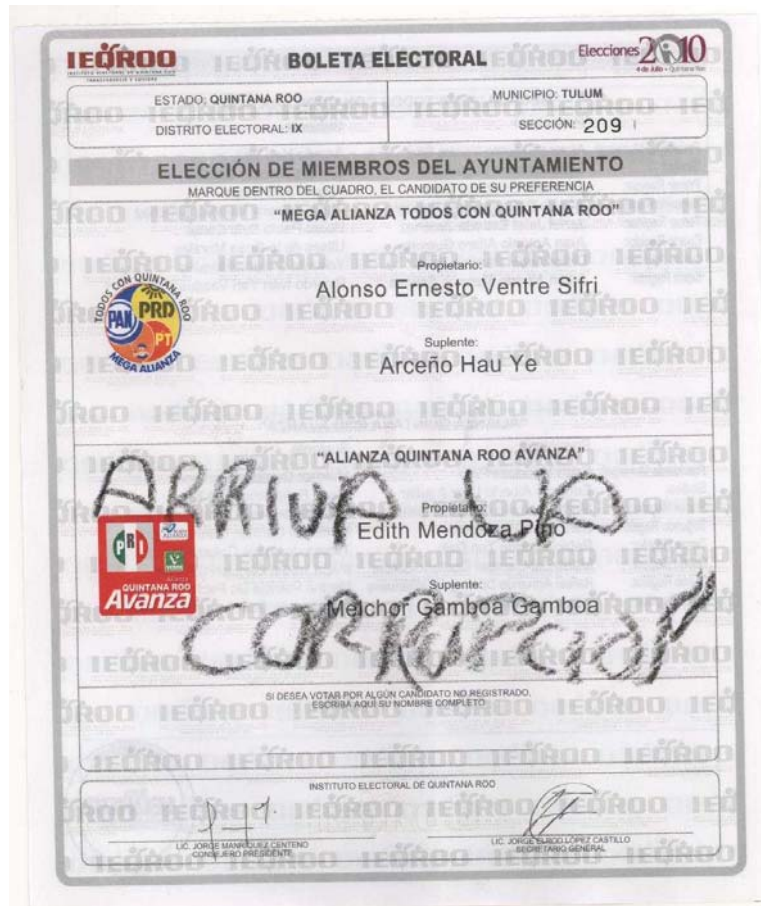 IEQROO
INSTITUTO ELECTORAL DE QUINTANA ROO
TRANSPARENCIA Y CERTEZA
BOLETA ELECTORAL
Elecciones 2010
4 de Julio - Quintana Roo
ESTADO: QUINTANA ROO
DISTRITO ELECTORAL: IX
MUNICIPIO: TULUM
SECCIÓN: 209
ELECCIÓN DE MIEMBROS DEL AYUNTAMIENTO
MARQUE DENTRO DEL CUADRO, EL CANDIDATO DE SU PREFERENCIA
“MEGA ALIANZA TODOS CON QUINTANA ROO”
TODOS CON QUINTANA ROO
PAN PRD
PT
MEGA ALIANZA
Propietario:
Alonso Ernesto Ventre Sifri
Suplente:
Arceño Hau Ye
“ALIANZA QUINTANA ROO AVANZA”
ARRIVA LA
Propietario:
Edith Mendoza Pino
PRI
VERDE
ALIANZA
QUINTANA ROO
Avanza
Suplente:
Melchor Gamboa Gamboa
CORRUPCION
SI DESEA VOTAR POR ALGÚN CANDIDATO NO REGISTRADO,
ESCRIBA AQUÍ SU NOMBRE COMPLETO
INSTITUTO ELECTORAL DE QUINTANA ROO
LIC. JORGE MANRÍQUEZ CENTENO
CONSEJERO PRESIDENTE
LIC. JORGE ELROD LÓPEZ CASTILLO
SECRETARIO GENERAL